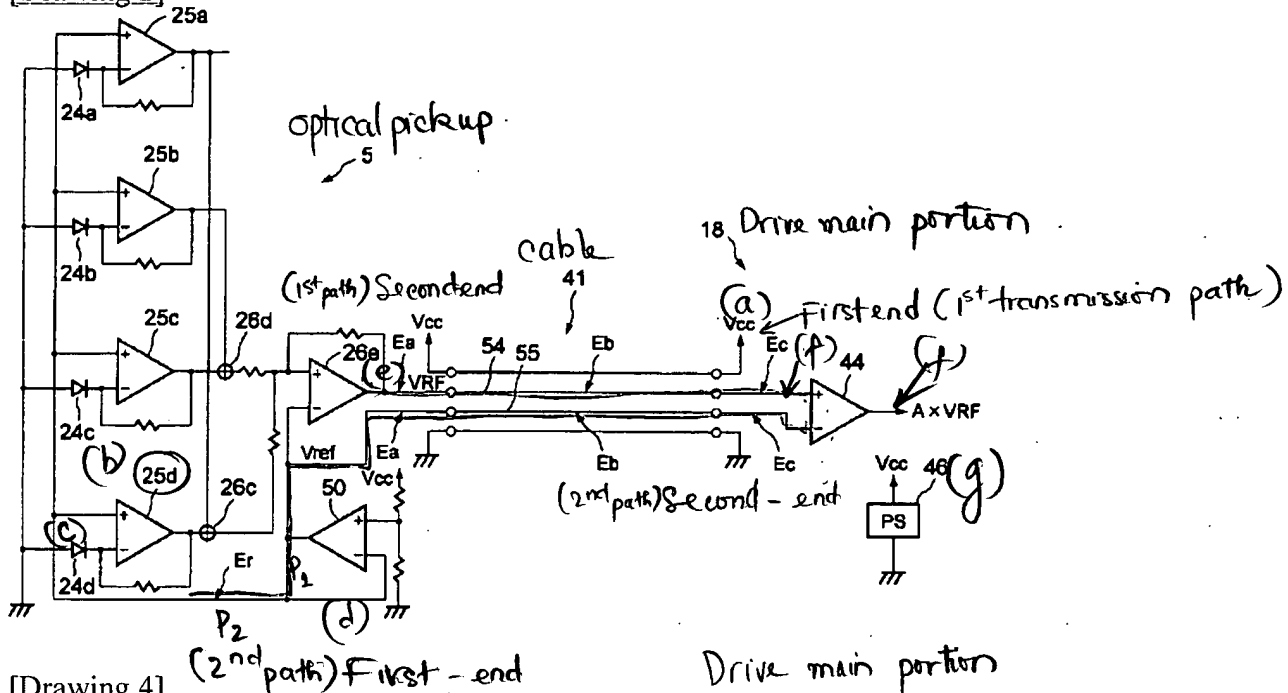 25a
24a
optical pickup
5
25b
18 Drive main portion
24b
cable
41
(1st path) Second end
(a)
First end (1st transmission path)
25c
26d
Vcc
Vcc
26e
(e)
Ea
54
55
Eb
Ec
(f)
44
(f)
VRF
A × VRF
24c
Vref
Ea
Eb
Ec
(b)
Vcc
Vcc
46
(g)
25d
26c
50
(2nd path) Second - end
PS
(c)
24d
Er
P1
P2
(d)
(2nd path) First - end
Drive main portion
[Drawing 4]
+
-
+
-
+
-
+
-
+
-
+
-
+
-